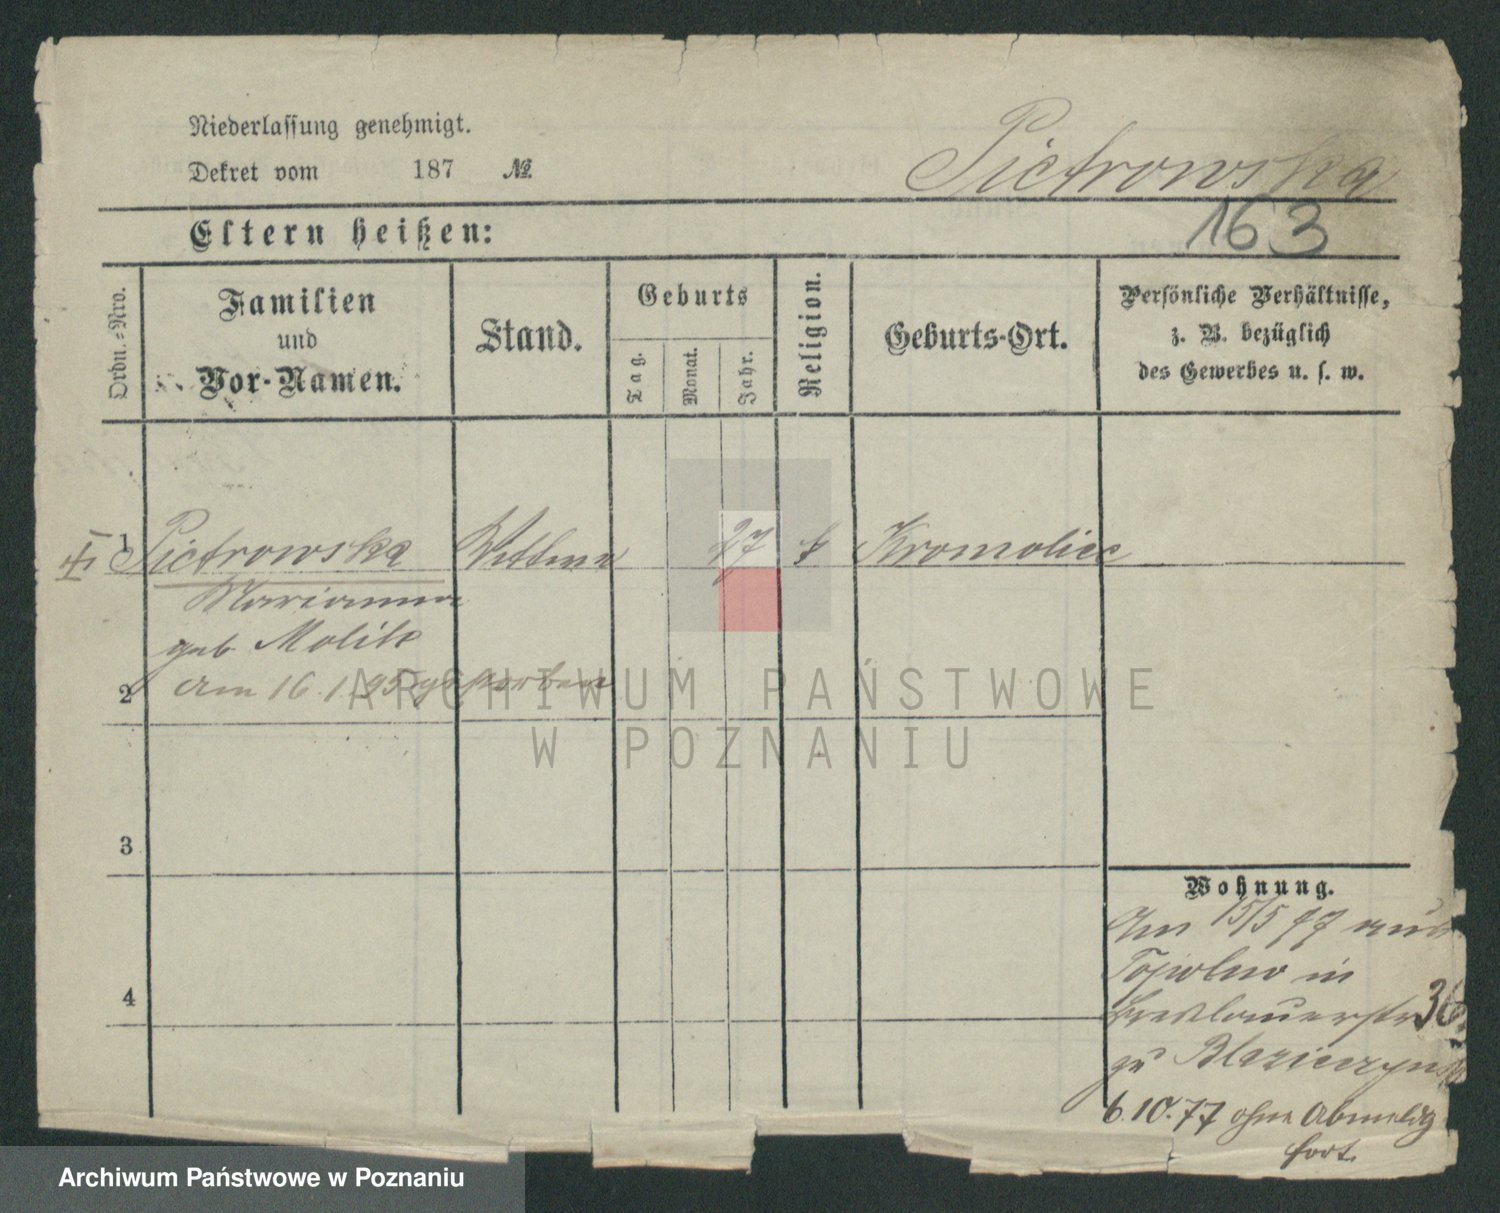 Niederlassung genehmigt.
Dekret vom 187 №
Pietrowska
163
Eltern heißen:
Ordn.-Nro.
Familien
und
Vor-Namen.
Stand.
Geburts
Tag.
Monat.
Jahr.
Religion.
Geburts-Ort.
Persönliche Verhältnisse,
z. B. bezüglich
des Gewerbes u. s. w.
1 Pietrowska Wittwe 27 k Kromolice
Marianna
geb Molik
2 am 16.1.95 gestorben
ARCHIWUM PAŃSTWOWE
W POZNANIU
3
4
Wohnung.
Am 15/5 77 aus
Topolno in
Breslauerstr 36
zu
6.10.77 ohne Abmeldg
fort.
Archiwum Państwowe w Poznaniu